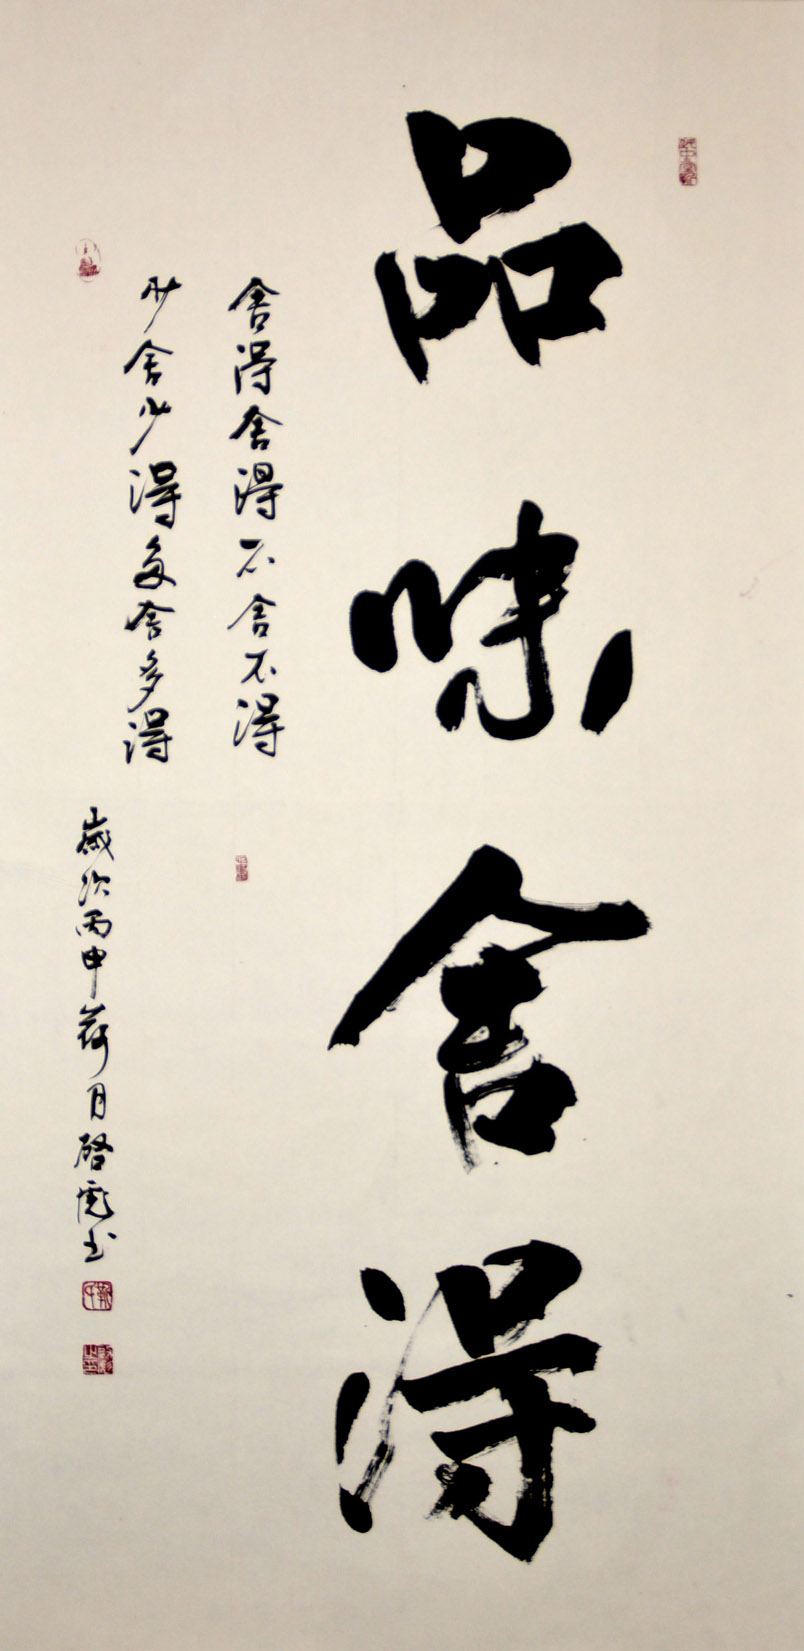 品味舍得
舍得舍得不舍不得
少舍少得多舍多得
歲次丙申荷月啓彪书